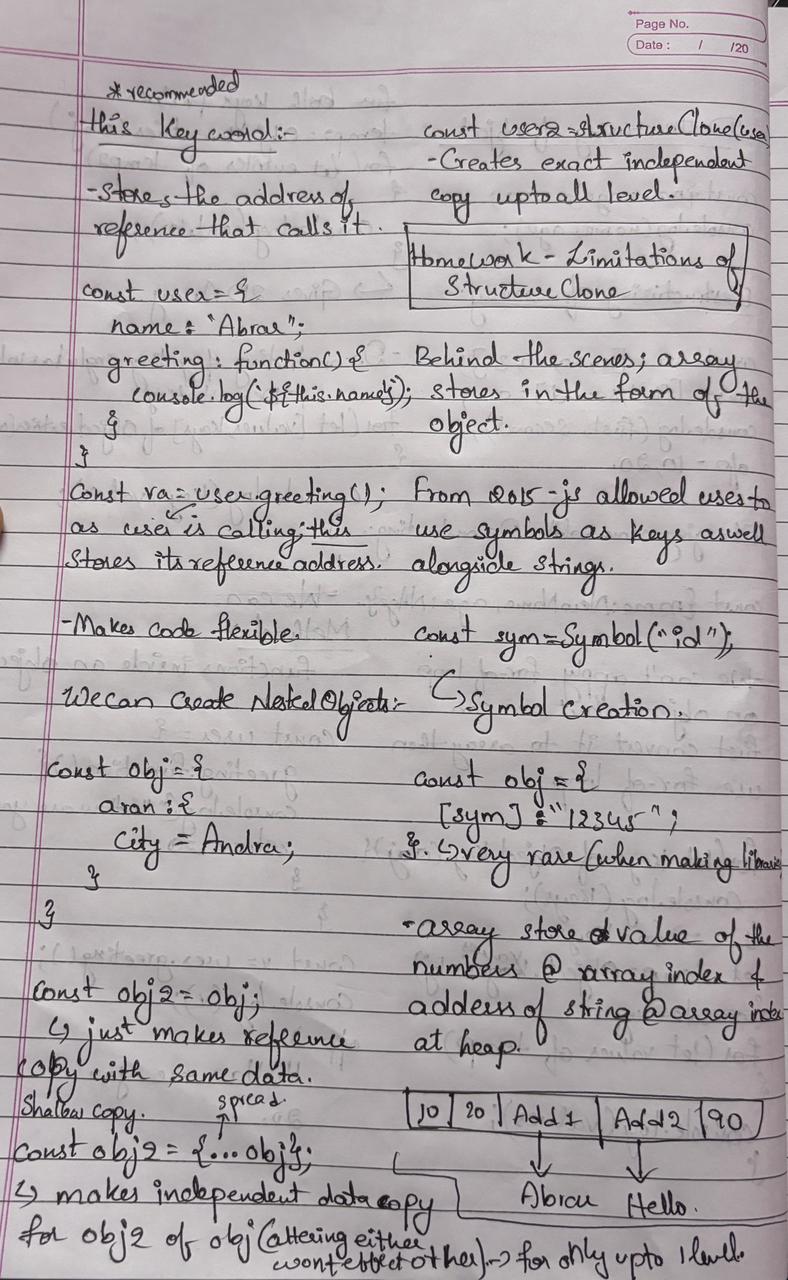 Page No.
Date : / /20
* recommended
this Keyword:-
- Stores the address of
reference that calls it.
const user = {
name : "Abrar";
greeting : function() {
console.log(`${this.name}`);
}
}
Const va = user.greeting();
as user is calling; this
stores its reference address.
- Makes code flexible.
We can Create Nested Objects:-
const obj = {
aran : {
city = Andra;
}
}
const obj2 = obj;
↳ just makes reference
copy with same data.
Shallow copy. spread.
const obj2 = {...obj};
↳ makes independent data copy
for obj2 of obj (altering either
wont effect other). → for only upto 1 level.
const user2 = structureClone(use
- Creates exact independent
copy upto all level.
Homework - Limitations of
StructureClone
Behind the scenes; array
stores in the form of the
object.
From 2015 - js allowed uses to
use symbols as keys aswell
alongside strings.
const sym = Symbol("id");
↳ Symbol creation.
const obj = {
[sym] : "12345";
}. ↳ very rare (when making libraries
- array store value of the
numbers @ array index &
address of string @ array index
at heap.
10 | 20 | Add 1 | Add 2 | 90
Abrar Hello.